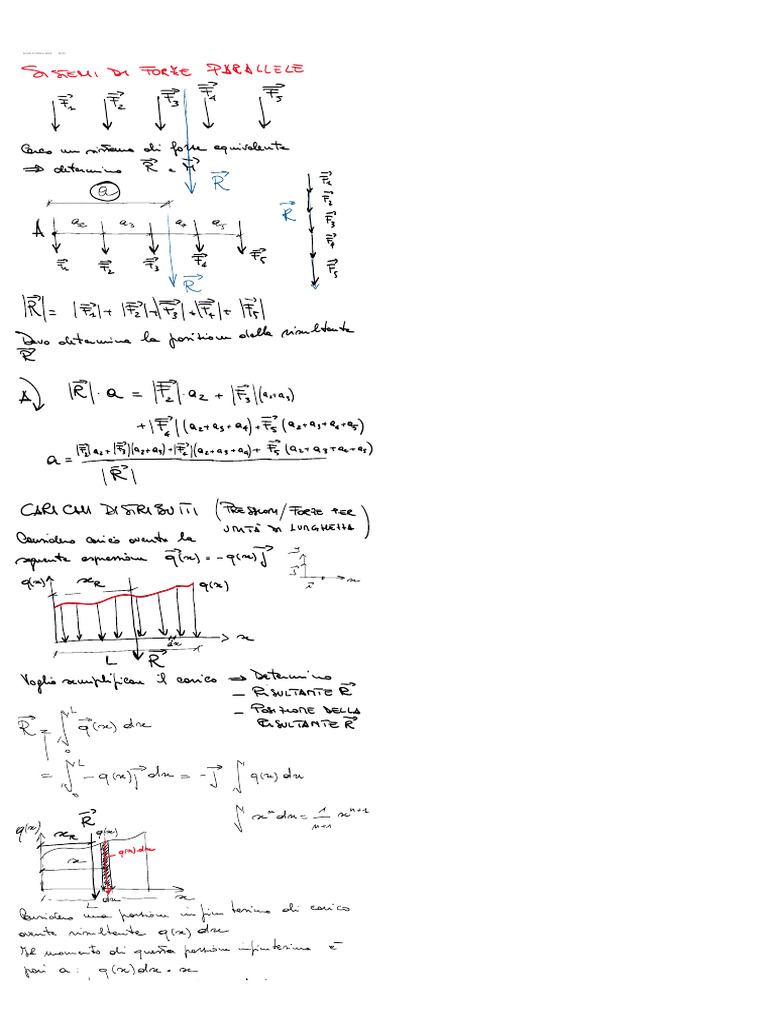 SISTEMI DI FORZE PARALLELE
F1 F2 F3 F4 F5
Cerco un sistema di forze equivalente
⇒ determino R e M
R
a
A a2 a3 a4 a5
F1 F2 F3 F4 F5
R
F1
F2
R F3
F4
F5
|R| = |F1| + |F2| + |F3| + |F4| + |F5|
Devo determinare la posizione della risultante
R
A |R| · a = |F2| · a2 + |F3| (a2+a3)
+ |F4| (a2+a3+a4) + F5 (a2+a3+a4+a5)
a = |F2| a2 + |F3| (a2+a3) + |F4| (a2+a3+a4) + F5 (a2+a3+a4+a5)
|R|
CARICHI DISTRIBUITI (PRESSIONI/FORZE PER
UNITÀ DI LUNGHEZZA)
Considero carico avente la
seguente espressione q(x) = -q(x) j
j i x
q(x) xR q(x)
dx x
L R
Voglio semplificare il carico ⇒ Determino
- RISULTANTE R
- POSIZIONE DELLA
RISULTANTE R
R = ∫0L q(x) dx
= ∫0L -q(x) j dx = -j ∫ q(x) dx
∫ xn dx = 1/n+1 xn+1
R
q(x) xR q(x)
q(x)dx
x
dx x
L
Considero una porzione infinitesima di carico
avente risultante q(x) dx
Il momento di questa porzione infinitesima è
pari a: q(x) dx · x